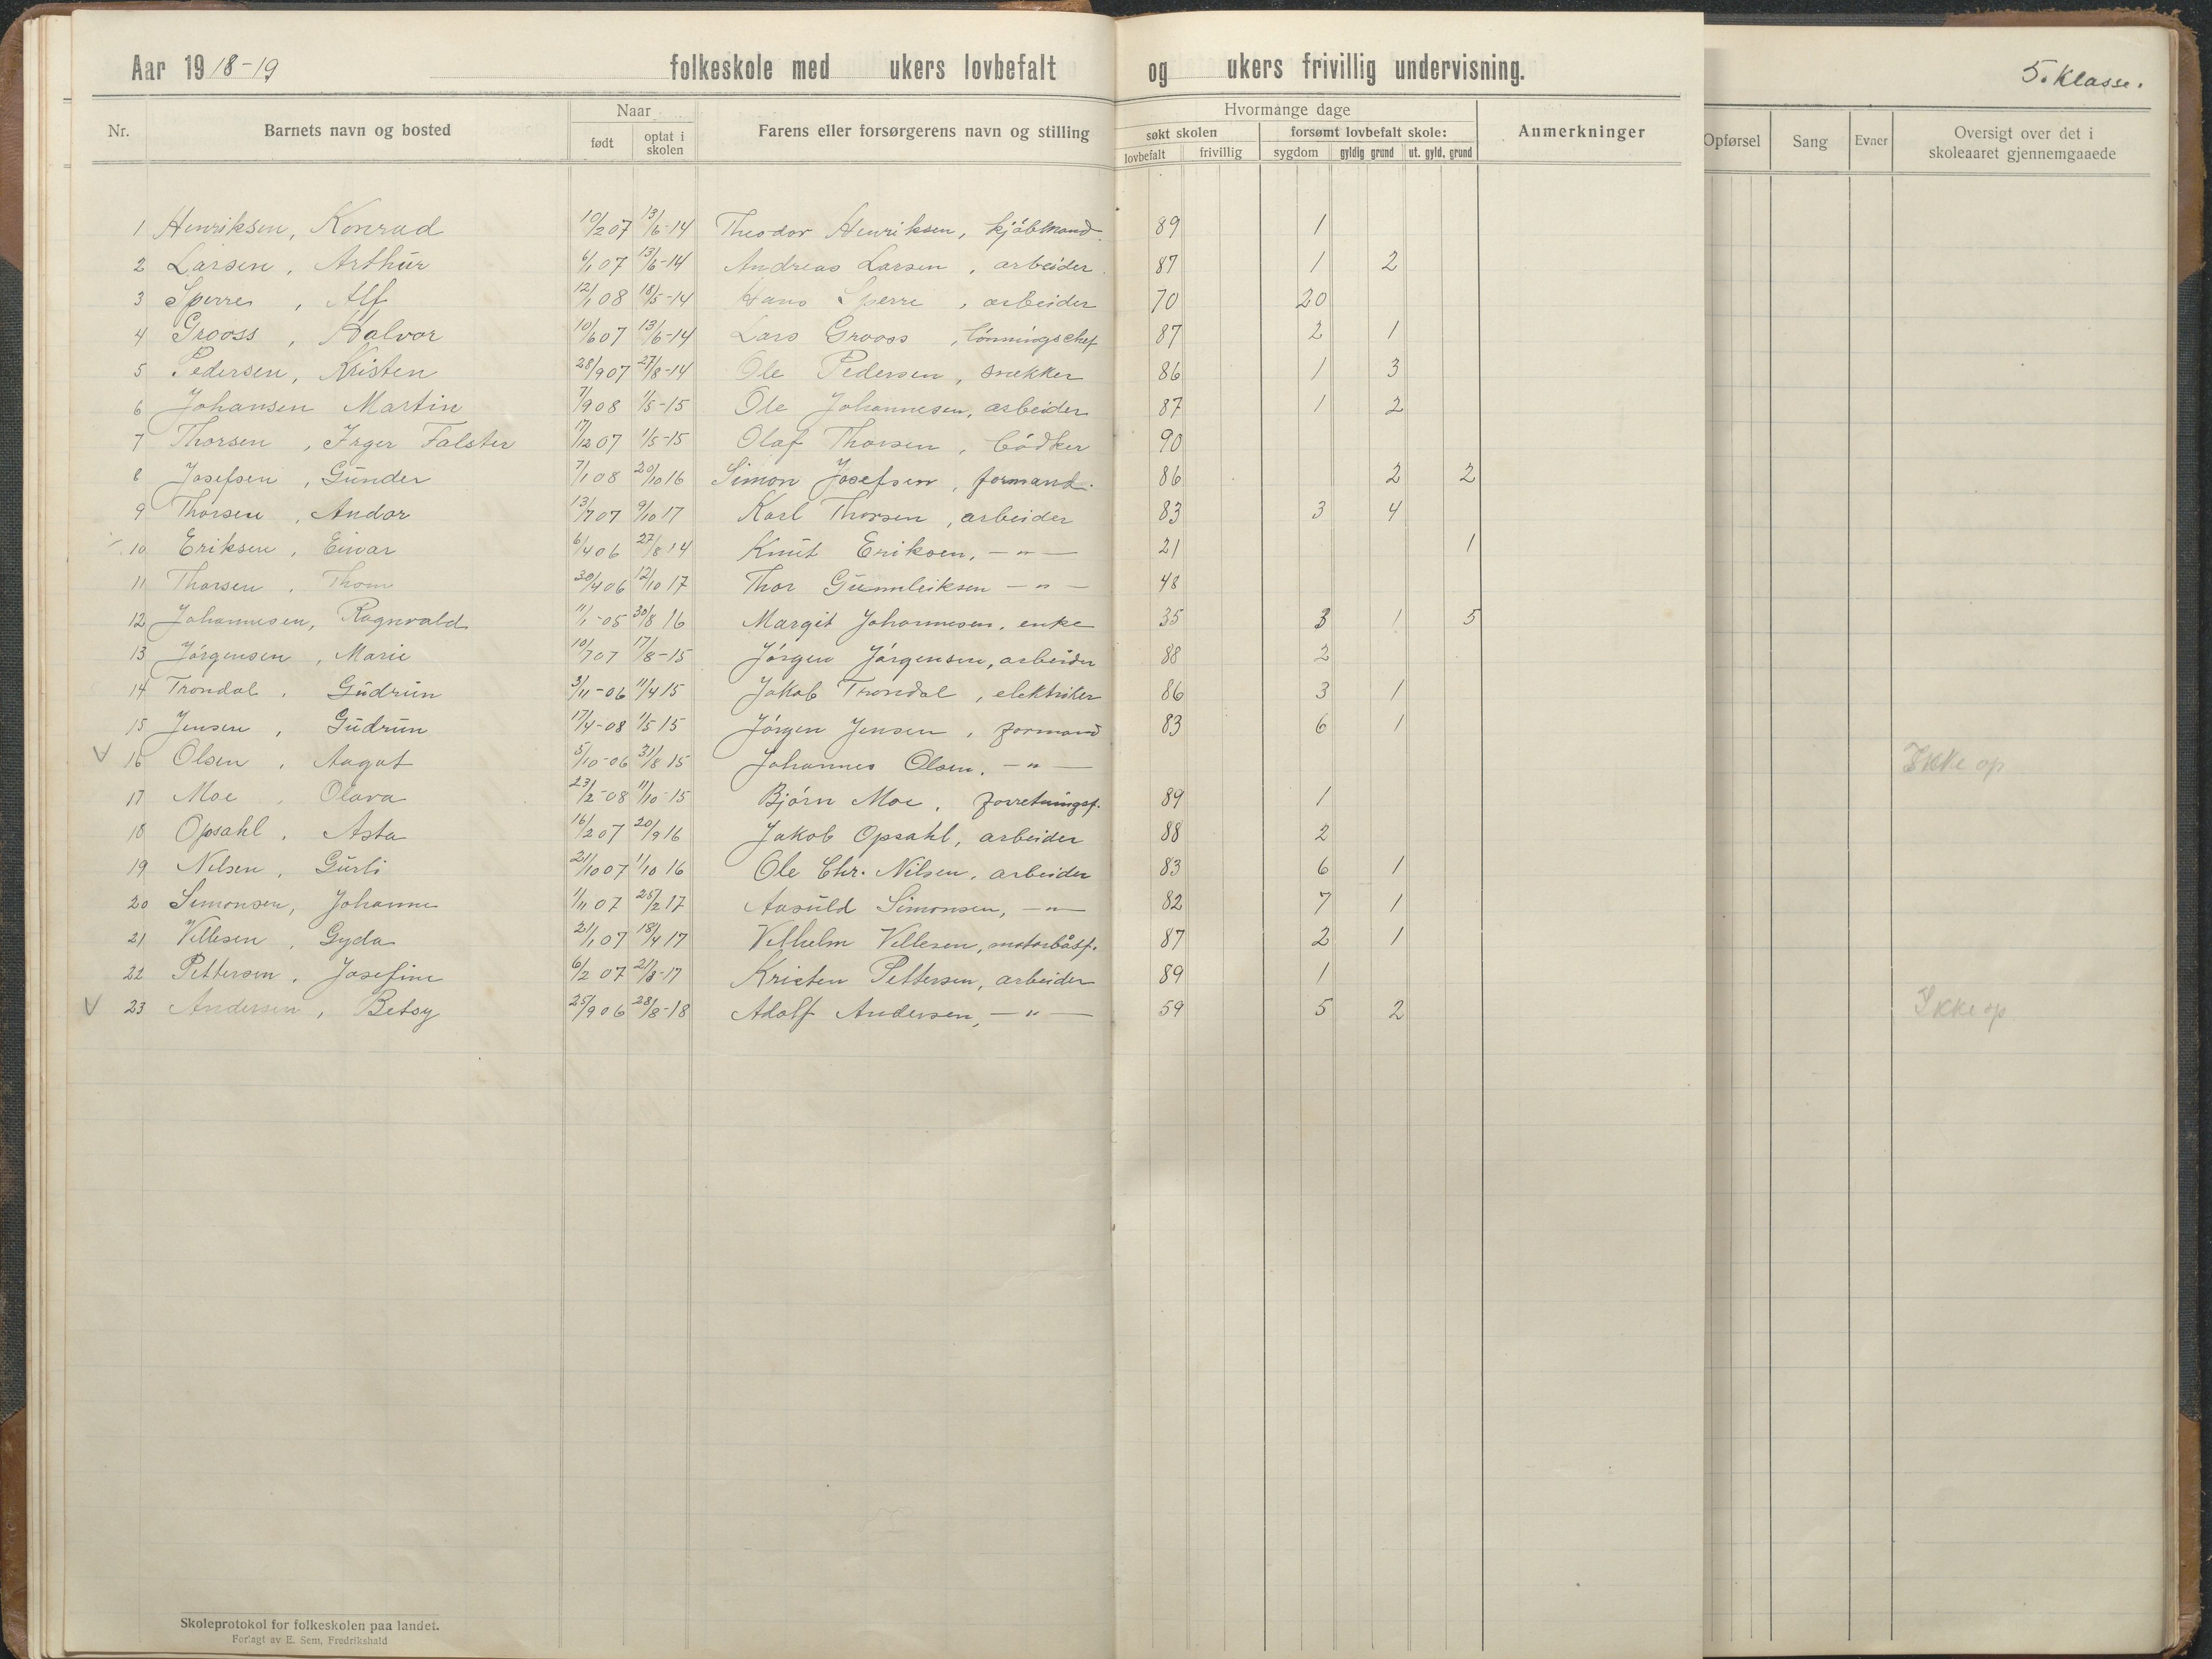 Aar 1918-19 folkeskole med ukers lovbefalt og ukers frivillig undervisning.
5. Klasse.
Nr. Barnets navn og bosted Naar Farens eller forsørgerens navn og stilling Hvormange dage Anmerkninger Opførsel Sang Evner Oversigt over det i skoleaaret gjennemgaaede
født optat i skolen søkt skolen forsømt lovbefalt skole:
lovbefalt frivillig sygdom gyldig grund ut. gyld. grund
1 Henriksen, Konrad 10/2 07 13/6-14 Theodor Henriksen, kjøbmand. 89 1
2 Larsen, Arthur 6/1 07 13/6-14 Andreas Larsen, arbeider. 87 1 2
3 Sperre, Alf 12/1 08 18/5-14 Hans Sperre, arbeider 70 20
4 Grooss, Halvor 10/6 07 13/6-14 Lars Grooss, lønningschef 87 2 1
5 Pedersen, Kristen 28/9 07 27/8-14 Ole Pedersen, snekker 86 1 3
6 Johansen Martin 7/9 08 1/5-15 Ole Johannesen, arbeider 87 1 2
7 Thorsen, Irger Falster 17/12 07 1/5-15 Olaf Thorsen, bødker 90
8 Josefsen, Gunder 7/1 08 20/10 16 Simon Josefsen, formand. 86 2 2
9 Thorsen, Andor 13/7 07 9/10 17 Karl Thorsen, arbeider 83 3 4
10 Eriksen, Einar 6/4 06 27/8 14 Knut Eriksen, -"- 21 1
11 Thorsen, Thom 30/4 06 12/10 17 Thor Gunnleiksen -"- 48
12 Johannesen, Ragnvald 11/1-05 30/8 16 Margit Johannesen, enke 35 3 1 5
13 Jørgensen, Marie 10/7 07 17/8-15 Jørgen Jørgensen, arbeider 88 2
14 Trondal, Gudrun 3/11-06 11/4 15 Jakob Trondal, elektriker 86 3 1
15 Jensen, Gudrun 17/4-08 1/5 15 Jørgen Jensen, formand 83 6 1
V 16 Olsen, Aagot 5/10-06 31/8 15 Johannes Olsen, -"- Ikke op
17 Moe, Olava 23/2-08 11/10-15 Bjørn Moe, forretningsf. 89 1
18 Opsahl, Asta 16/2 07 20/9 16 Jakob Opsahl, arbeider 88 2
19 Nilsen, Gurli 21/10 07 1/10 16 Ole Chr. Nilsen, arbeider 83 6 1
20 Simonsen, Johanne 1/11 07 25/2 17 Aasuld Simonsen, -"- 82 7 1
21 Villesen, Gyda 21/1 07 18/4 17 Vilhelm Villesen, motorbåtf. 87 2 1
22 Pettersen, Josefine 6/2 07 21/8-17 Kristen Pettersen, arbeider 89 1
V 23 Andersen, Betsy 25/9 06 28/8-18 Adolf Andersen, -"- 59 5 2 Ikke op
Skoleprotokol for folkeskolen paa landet.
Forlagt av E. Sem, Fredrikshald